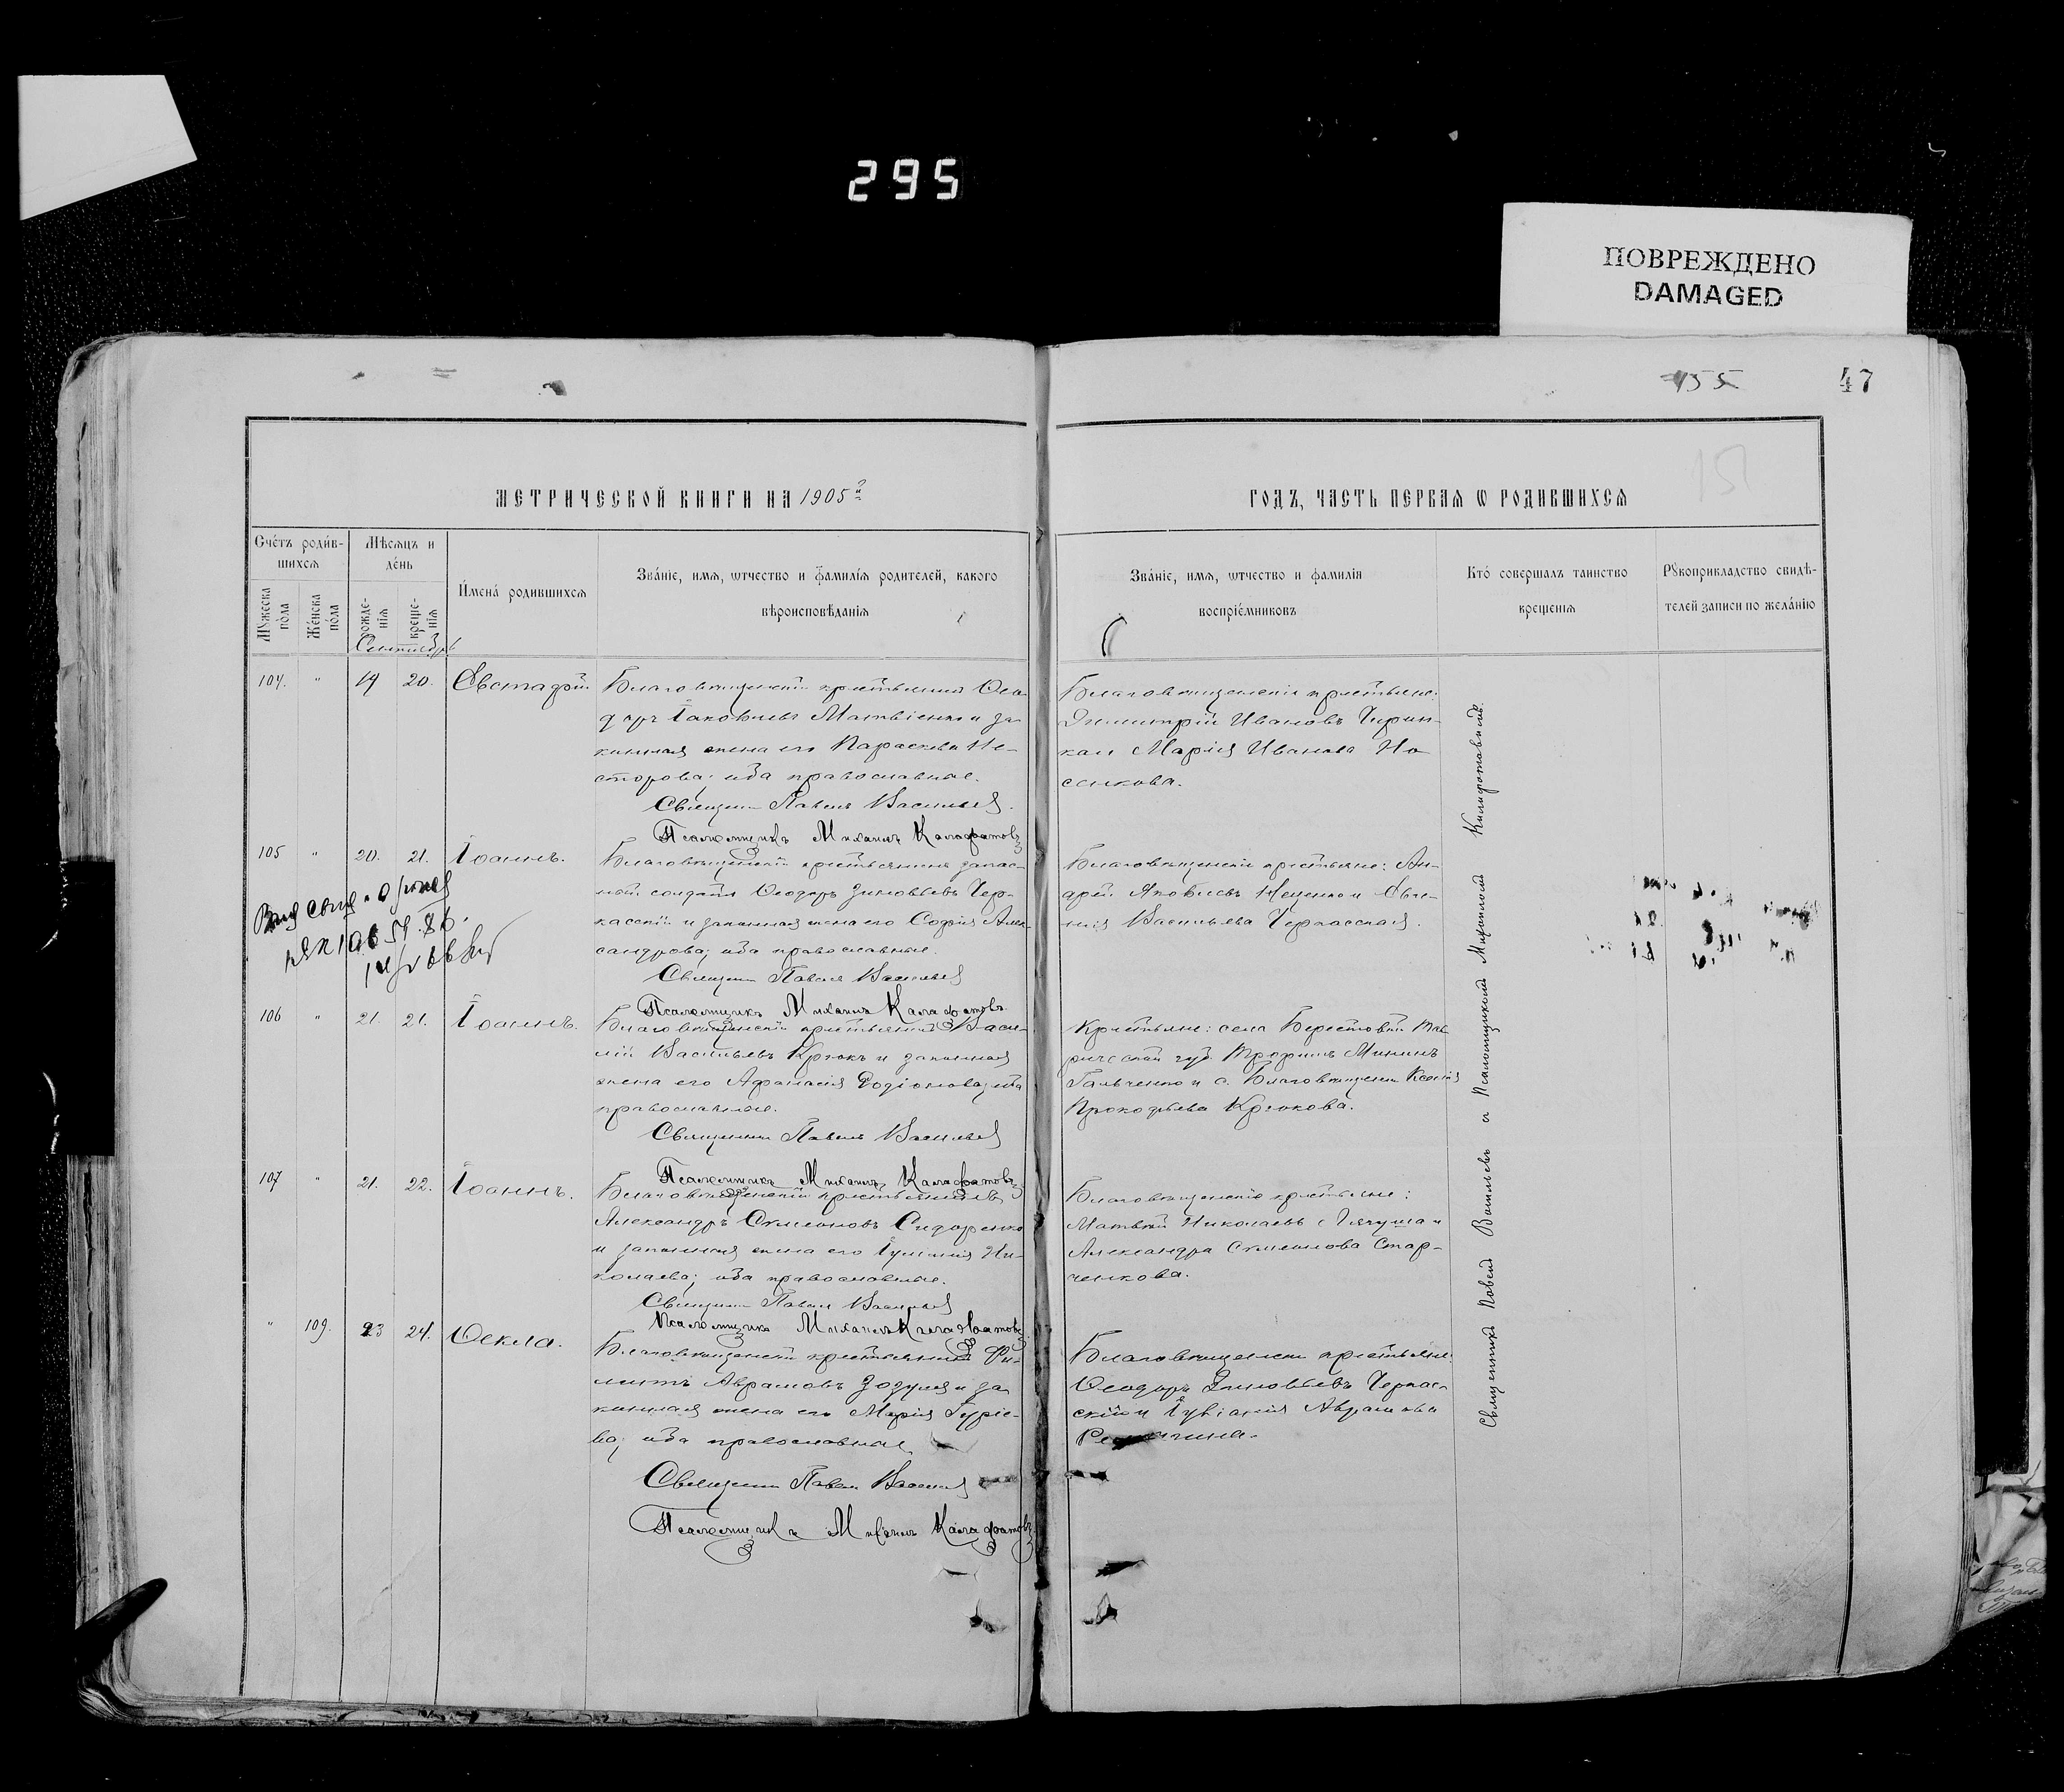 295
ПОВРЕЖДЕНО
DAMAGED
155
47
151
МЕТРИЧЕСКОЙ КНИГИ НА 1905 й
ГОДЪ, ЧАСТЬ ПЕРВАЯ Ѡ РОДИВШИХСЯ
Сче́тъ роди́в-
шихся
Мѣсяцъ и
де́нь
И́мена́ родившихся
Зва́нїе, имя, ѡтчество и фами́лїя родителей, какого
вѣроисповѣданїя
Мꙋжеска
по́ла
Же́нска
по́ла
рожде-
нїя
креще-
нїя
Сентябрь
Зва́нїе, имя, ѡтчество и фамилїя
воспрїе́мниковъ
Кто́ совершалъ таинство
крещенїя
Рꙋкоприкладство свидѣ-
телей записи по жела́нїю
104. " 14 20. Евстафій
Благовѣщенскій крестьянинъ Ѳео-
доръ Іаковлевъ Матвіенко и за-
конная жена его Параскева Не-
сторова; оба православные.
Священникъ Павелъ Васильевъ
Псаломщикъ Михаилъ Калафатовъ
Благовѣщенскіе крестьяне:
Димитрій Ивановъ Чирин-
ка и Марія Иванова Но-
сенкова.
105 " 20. 21. Іоаннъ.
Благовѣщенскій крестьянинъ запас-
ный солдатъ Ѳеодоръ Зиновьевъ Чер-
касскій и законная жена его Софія Алек-
сандрова; оба православные.
Священникъ Павелъ Васильевъ
Псаломщикъ Михаилъ Калафатовъ
Благовѣщенскіе крестьяне: Ан-
дрей Яковлевъ Ищенко и Евге-
нія Васильева Черкасская.
106 " 21. 21. Іоаннъ.
Благовѣщенскій крестьянинъ Васи-
лій Васильевъ Крюкъ и законная
жена его Афанасія Родіонова; оба
православные.
Священникъ Павелъ Васильевъ
Псаломщикъ Михаилъ Калафатовъ
Крестьяне: села Берестовой Тав-
рической губ. Трофимъ Мининъ
Гальченко и с. Благовѣщенки Ксенія
Прокофьева Крюкова.
107 " 21. 22. Іоаннъ.
Благовѣщенскій крестьянинъ
Александръ Симеоновъ Сидоренко
и законная жена его Іуліанія Ни-
колаева; оба православные.
Священникъ Павелъ Васильевъ
Псаломщикъ Михаилъ Калафатовъ
Благовѣщенскіе крестьяне:
Матвей Николаевъ и
Александра Симеонова Стар-
ченкова.
" 109. 23 24. Ѳекла.
Благовѣщенскій крестьянинъ Фи-
липпъ Аврамовъ Зозуля и за-
конная жена его Марія Гуріе-
ва; оба православные
Священникъ Павелъ Васильевъ
Псаломщикъ Михаилъ Калафатовъ
Благовѣщенскіе крестьяне:
Ѳеодоръ Зиновьевъ Черкас-
скій и Іуліанія Аврамова
Священникъ Павелъ Васильевъ съ Псаломщикомъ Михаиломъ